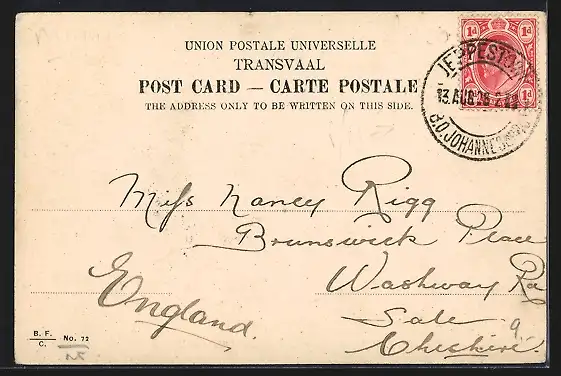 UNION POSTALE UNIVERSELLE
TRANSVAAL
POST CARD — CARTE POSTALE
THE ADDRESS ONLY TO BE WRITTEN ON THIS SIDE.
1d 1d
JEPPESTOWN
13 AUG
B.O. JOHANNESBURG
1d 1d
Miss Nancy Rigg
Brunswick Place
Washway Rd
England
Sale
Cheshire
B. F.
C.
No. 72